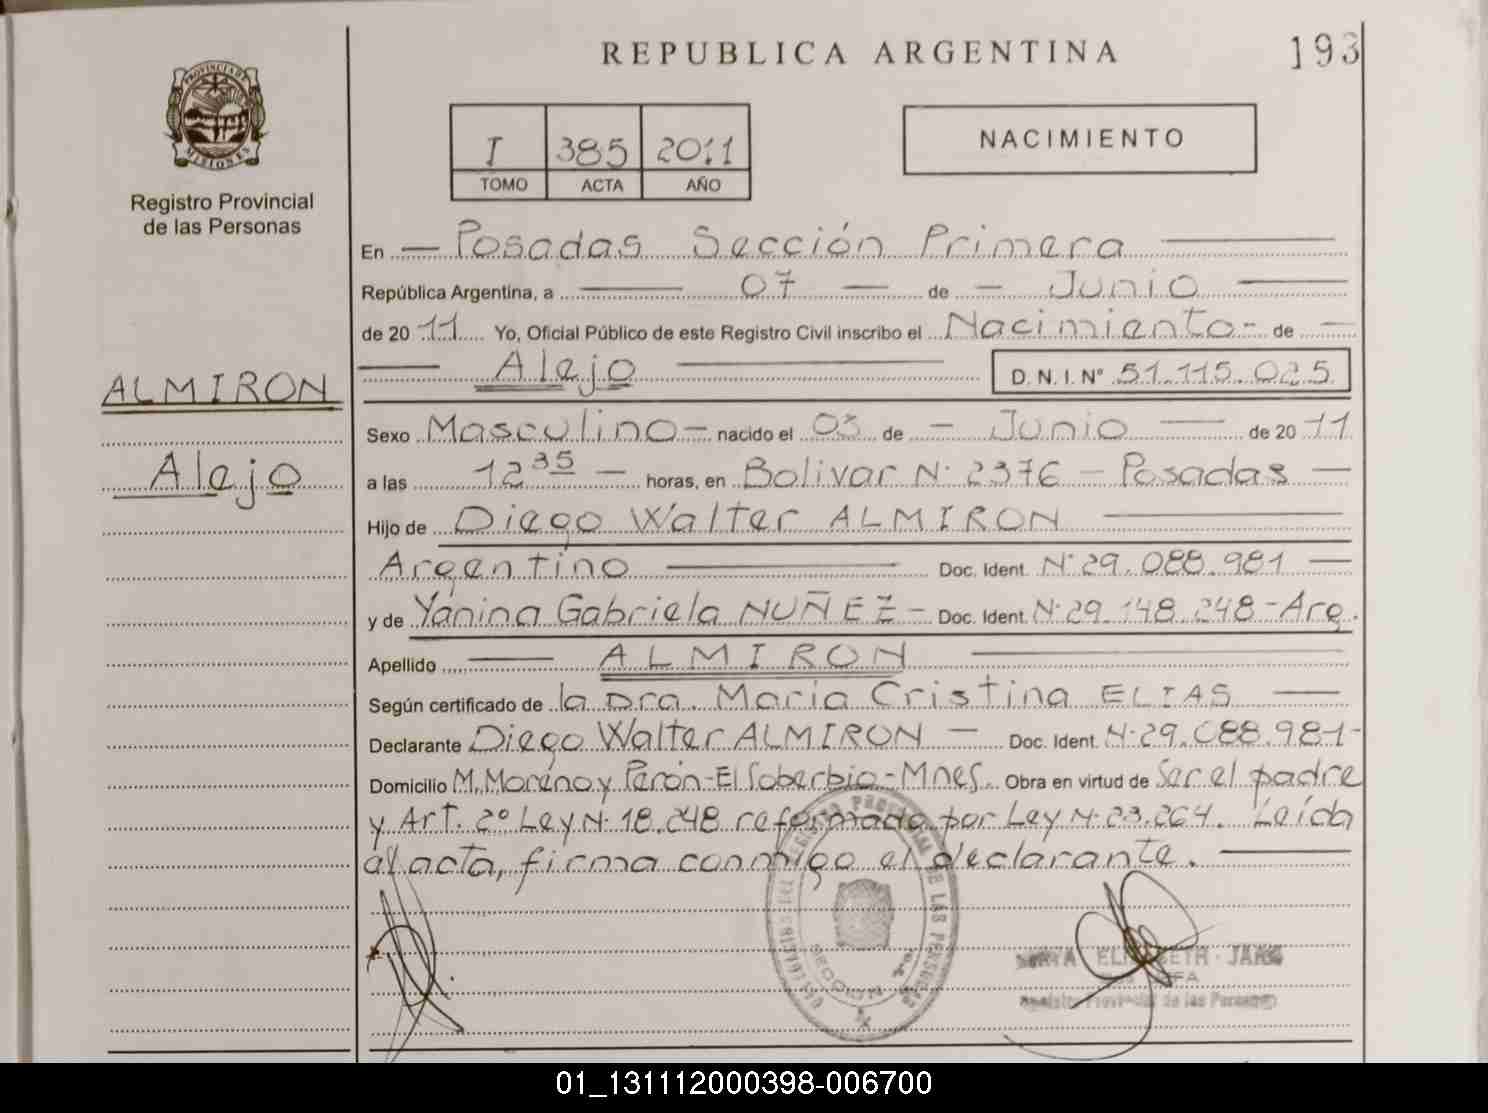 REPUBLICA ARGENTINA
193
PROVINCIA DE
MISIONES
Registro Provincial
de las Personas
I 385 2011
TOMO ACTA AÑO
NACIMIENTO
En Posadas Sección Primera
República Argentina, a 07 de Junio
de 2011 Yo, Oficial Público de este Registro Civil inscribo el Nacimiento de
Alejo D. N. I. Nº 51.115.025
ALMIRON
Alejo
Sexo Masculino nacido el 03 de Junio de 2011
a las 12 35 horas, en Bolivar Nº 2376 - Posadas
Hijo de Diego Walter ALMIRON
Argentino Doc. Ident. Nº 29.088.981
y de Yanina Gabriela NUÑEZ - Doc. Ident. Nº 29.148.248 - Arg.
Apellido ALMIRON
Según certificado de la Dra. Maria Cristina ELIAS
Declarante Diego Walter ALMIRON Doc. Ident. Nº 29.088.981-
Domicilio M. Moreno y Perón - El Soberbio - Mnes. Obra en virtud de Ser el padre
y Art. 2º Ley Nº 18.248 reformada por Ley Nº 23.264. Leída
el acta, firma conmigo el declarante.
REGISTRO PROVINCIAL DE LAS PERSONAS
SECCION 1ra.
Registro Provincial de las Personas
01_131112000398-006700